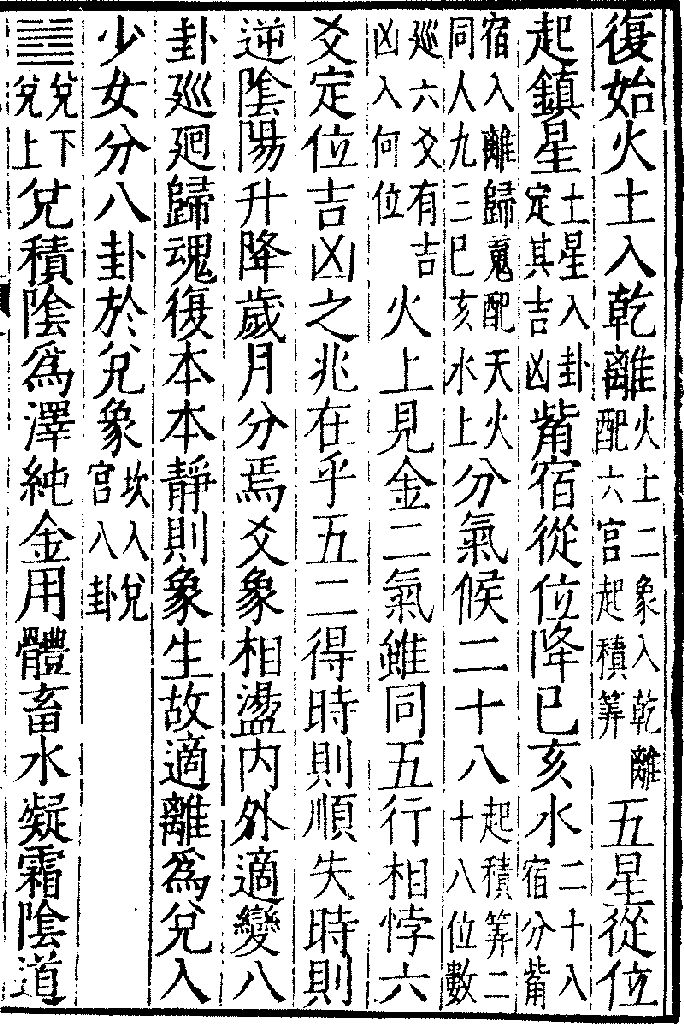 復始火土入乾離火土二象入乾離配六宮起積筭五星從位
起鎮星土星入卦定其吉凶觜宿從位降巳亥水二十八宿分觜
宿入離歸䰟配天火同人九三巳亥水上分氣候二十八起積筭二十八位數
巡六爻有吉凶入何位火上見金二氣雖同五行相悖六
爻定位吉凶之兆在乎五二得時則順失時則
逆陰陽升降歲月分焉爻象相盪内外適變八
卦巡廻歸魂復本本靜則象生故適離為兌入
少女分八卦於兌象坎入兌宮八卦
䷹兌下兌上兌積陰為澤純金用體畜水凝霜陰道